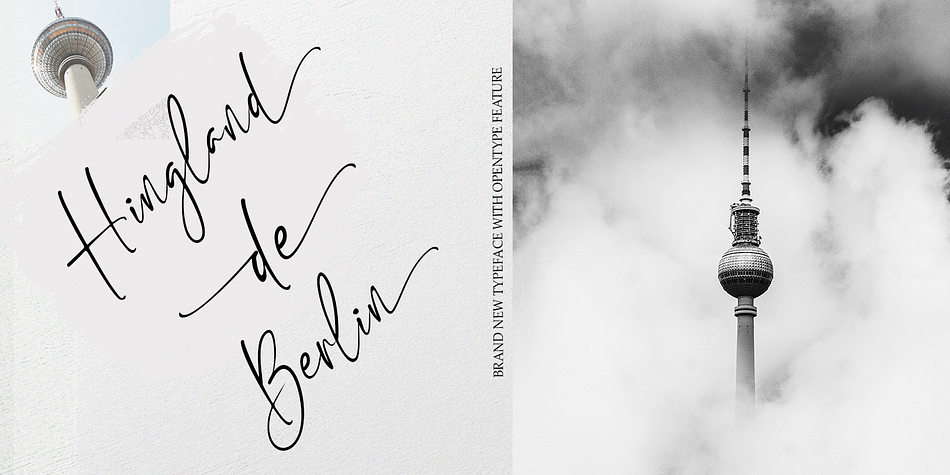 Hingland
de
Berlin
BRAND NEW TYPEFACE WITH OPENTYPE FEATURE